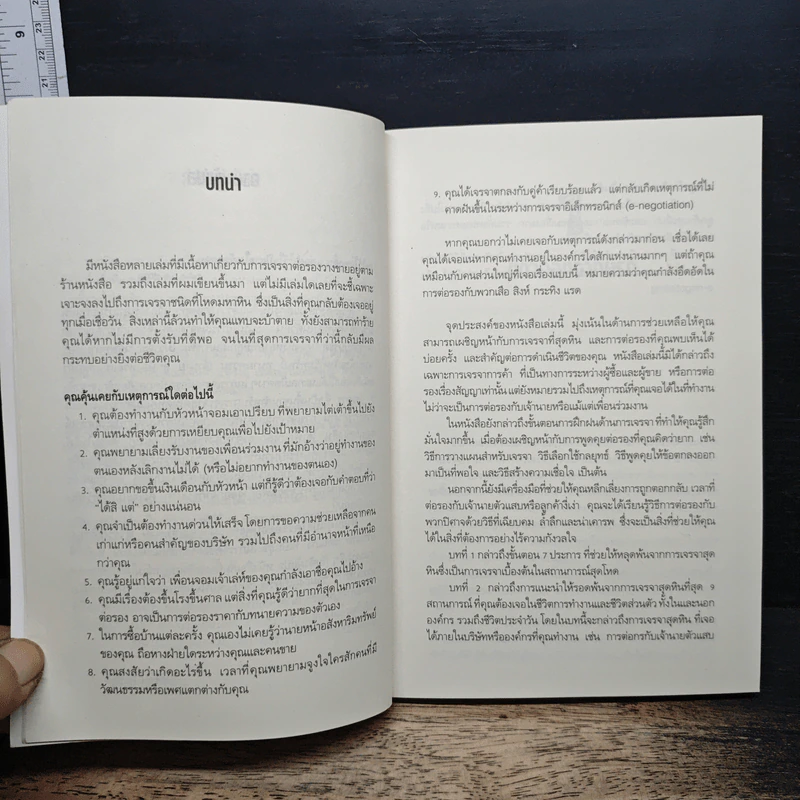 9
23
22
21
บทนำ
มีหนังสือหลายเล่มที่มีเนื้อหาเกี่ยวกับการเจรจาต่อรองวางขายอยู่ตาม
ร้านหนังสือ รวมถึงเล่มที่ผมเขียนขึ้นมา แต่ไม่มีเล่มใดเลยที่จะชี้เฉพาะ
เจาะจงลงไปถึงการเจรจาชนิดที่โหดมหาหิน ซึ่งเป็นสิ่งที่คุณกลับต้องเจออยู่
ทุกเมื่อเชื่อวัน สิ่งเหล่านี้ล้วนทำให้คุณแทบจะบ้าตาย ทั้งยังสามารถทำร้าย
คุณได้หากไม่มีการตั้งรับที่ดีพอ จนในที่สุดการเจรจาที่ว่านี้กลับมีผล
กระทบอย่างยิ่งต่อชีวิตคุณ
คุณคุ้นเคยกับเหตุการณ์ใดต่อไปนี้
1. คุณต้องทำงานกับหัวหน้าจอมเอาเปรียบ ที่พยายามไต่เต้าขึ้นไปยัง
ตำแหน่งที่สูงด้วยการเหยียบคุณเพื่อไปยังเป้าหมาย
2. คุณพยายามเลี่ยงรับงานของเพื่อนร่วมงาน ที่มักอ้างว่าอยู่ทำงานของ
ตนเองหลังเลิกงานไม่ได้ (หรือไม่อยากทำงานของตนเอง)
3. คุณอยากขอขึ้นเงินเดือนกับหัวหน้า แต่ก็รู้ดีว่าต้องเจอกับคำตอบที่ว่า
"ได้สิ แต่" อย่างแน่นอน
4. คุณจำเป็นต้องทำงานด่วนให้เสร็จ โดยการขอความช่วยเหลือจากคน
เก่าแก่หรือคนสำคัญของบริษัท รวมไปถึงคนที่มีอำนาจหน้าที่เหนือ
กว่าคุณ
5. คุณรู้อยู่แก่ใจว่า เพื่อนจอมเจ้าเล่ห์ของคุณกำลังเอาชื่อคุณไปอ้าง
6. คุณมีเรื่องต้องขึ้นโรงขึ้นศาล แต่สิ่งที่คุณรู้ดีว่ายากที่สุดในการเจรจา
ต่อรอง อาจเป็นการต่อรองราคากับทนายความของตัวเอง
7. ในการซื้อบ้านแต่ละครั้ง คุณเองไม่เคยรู้ว่านายหน้าอสังหาริมทรัพย์
ของคุณ ถือหางฝ่ายใดระหว่างคุณและคนขาย
8. คุณสงสัยว่าเกิดอะไรขึ้น เวลาที่คุณพยายามจูงใจใครสักคนที่มี
วัฒนธรรมหรือเพศแตกต่างกับคุณ
9. คุณได้เจรจาตกลงกับคู่ค้าเรียบร้อยแล้ว แต่กลับเกิดเหตุการณ์ที่ไม่
คาดฝันขึ้นในระหว่างการเจรจาอิเล็กทรอนิกส์ (e-negotiation)
หากคุณบอกว่าไม่เคยเจอกับเหตุการณ์ดังกล่าวมาก่อน เชื่อได้เลย
คุณได้เจอแน่หากคุณทำงานอยู่ในองค์กรใดสักแห่งนานมากๆ แต่ถ้าคุณ
เหมือนกับคนส่วนใหญ่ที่เจอเรื่องแบบนี้ หมายความว่าคุณกำลังอึดอัดใน
การต่อรองกับพวกเสือ สิงห์ กระทิง แรด
จุดประสงค์ของหนังสือเล่มนี้ มุ่งเน้นในด้านการช่วยเหลือให้คุณ
สามารถเผชิญหน้ากับการเจรจาที่สุดหิน และการต่อรองที่คุณพบเห็นได้
บ่อยครั้ง และสำคัญต่อการดำเนินชีวิตของคุณ หนังสือเล่มนี้มิได้กล่าวถึง
เฉพาะการเจรจาการค้า ที่เป็นทางการระหว่างผู้ซื้อและผู้ขาย หรือการต่อ
รองเรื่องสัญญาเท่านั้น แต่ยังหมายรวมไปถึงเหตุการณ์ที่คุณเจอได้ในที่ทำงาน
ไม่ว่าจะเป็นการต่อรองกับเจ้านายหรือแม้แต่เพื่อนร่วมงาน
ในหนังสือยังกล่าวถึงขั้นตอนการฝึกฝนด้านการเจรจา ที่ทำให้คุณรู้สึก
มั่นใจมากขึ้น เมื่อต้องเผชิญหน้ากับการพูดคุยต่อรองที่คุณคิดว่ายาก เช่น
วิธีการวางแผนสำหรับเจรจา วิธีเลือกใช้กลยุทธ์ วิธีพูดคุยให้ข้อตกลงออก
มาเป็นที่พอใจ และวิธีสร้างความเชื่อใจ เป็นต้น
นอกจากนี้ยังมีเครื่องมือที่ช่วยให้คุณหลีกเลี่ยงการถูกตอกกลับ เวลาที่
ต่อรองกับเจ้านายตัวแสบหรือลูกค้างี่เง่า คุณจะได้เรียนรู้วิธีการต่อรองกับ
พวกปีศาจด้วยวิธีที่เฉียบคม ล้ำลึกและน่าเคารพ ซึ่งจะเป็นสิ่งที่ช่วยให้คุณ
ได้ในสิ่งที่ต้องการอย่างไร้ความกังวลใจ
บทที่ 1 กล่าวถึงขั้นตอน 7 ประการ ที่ช่วยให้หลุดพ้นจากการเจรจาสุด
หินซึ่งเป็นการเจรจาเบื้องต้นในสถานการณ์สุดโหด
บทที่ 2 กล่าวถึงการแนะนำให้รอดพ้นจากการเจรจาสุดหินที่สุด 9
สถานการณ์ ที่คุณต้องเจอในชีวิตการทำงานและชีวิตส่วนตัว ทั้งในและนอก
องค์กร รวมถึงชีวิตประจำวัน โดยในบทนี้จะกล่าวถึงการเจรจาสุดหิน ที่เจอ
ได้ภายในบริษัทหรือองค์กรที่คุณทำงาน เช่น การต่อกรกับเจ้านายตัวแสบ